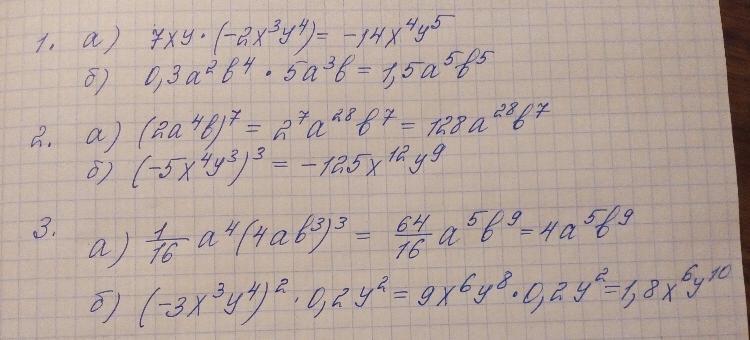 1. а) 7xy·(-2x³y⁴)= -14x⁴y⁵
б) 0,3a²b⁴ · 5a³b = 1,5a⁵b⁵
2. а) (2a⁴b)⁷ = 2⁷a²⁸b⁷ = 128a²⁸b⁷
б) (-5x⁴y³)³ = -125x¹²y⁹
3. а) 1/16 a⁴(4ab³)³ = 64/16 a⁵b⁹ = 4a⁵b⁹
б) (-3x³y⁴)² · 0,2y² = 9x⁶y⁸ · 0,2y² = 1,8x⁶y¹⁰